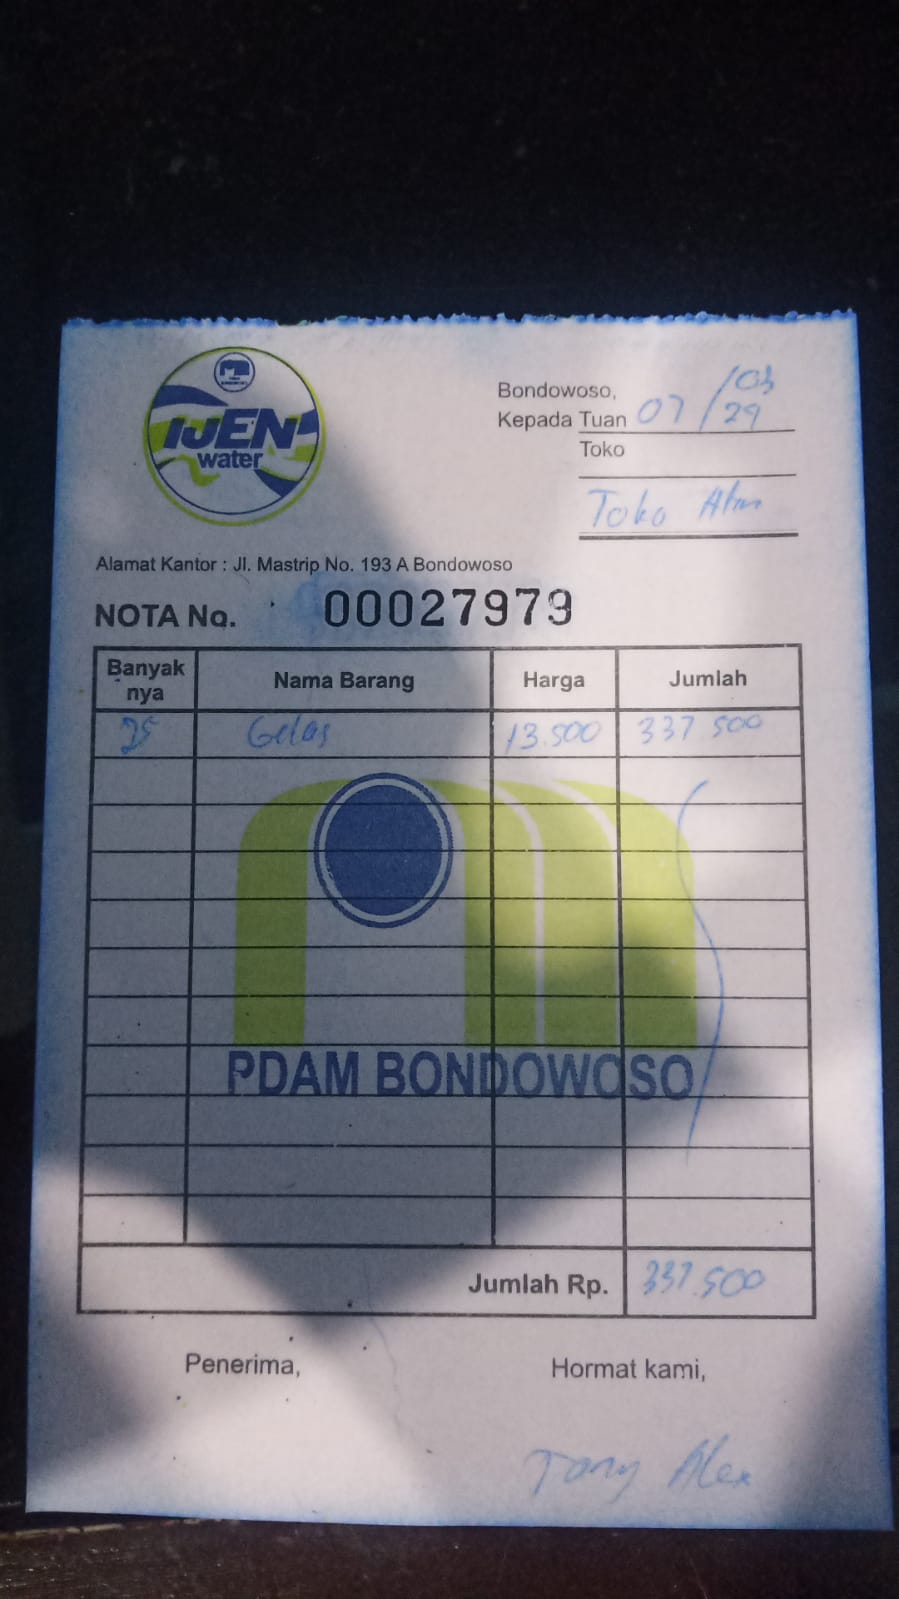 IJEN
water
Bondowoso, /03
Kepada Tuan 07 / 29
Toko
Toko
Alamat Kantor : Jl. Mastrip No. 193 A Bondowoso
NOTA No. 00027979
Banyak nya Nama Barang Harga Jumlah
25 Gelas 13.500 337 500
PDAM BONDOWOSO
Jumlah Rp. 337.500
Penerima, Hormat kami,
Tony Alex